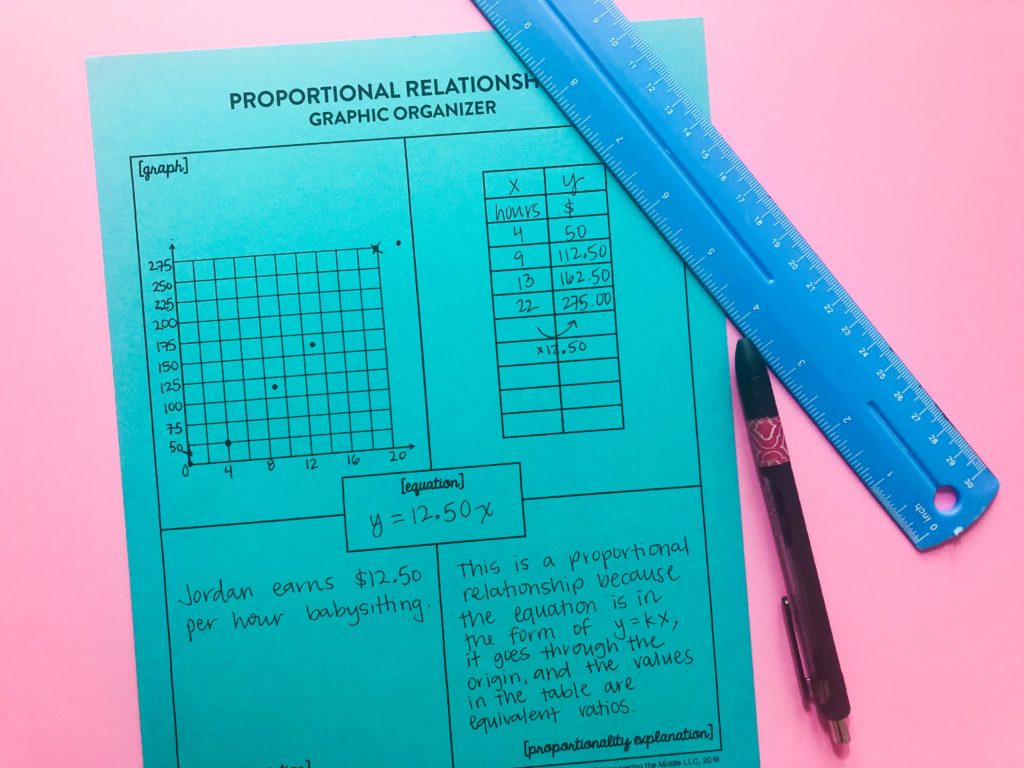 PROPORTIONAL RELATIONSH
GRAPHIC ORGANIZER
[graph]
275
250
225
200
175
150
125
100
75
50
0 4 8 12 16 20
x y
hours $
4 50
9 112.50
13 162.50
22 275.00
x12.50
[equation]
y = 12.50x
Jordan earns $12.50
per hour babysitting.
This is a proportional
relationship because
the equation is in
the form of y=kx,
it goes through the
origin, and the values
in the table are
equivalent ratios.
[proportionality explanation]
the Middle LLC, 2016
9
8
7
6
5
4
3
2
0 inch
9
10
11
12
13
14
15
16
17
18
19
20
21
22
23
24
25
26
27
28
29
30